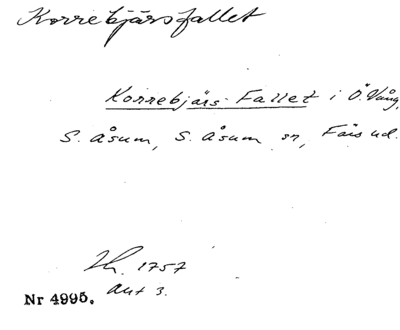 Korrebjärsfallet
Korrebjärs-Fallet i Ö. Vång,
S. Åsum, S. Åsum sn, Färs hd.
Lh. 1757
Akt 3.
Nr 4995.